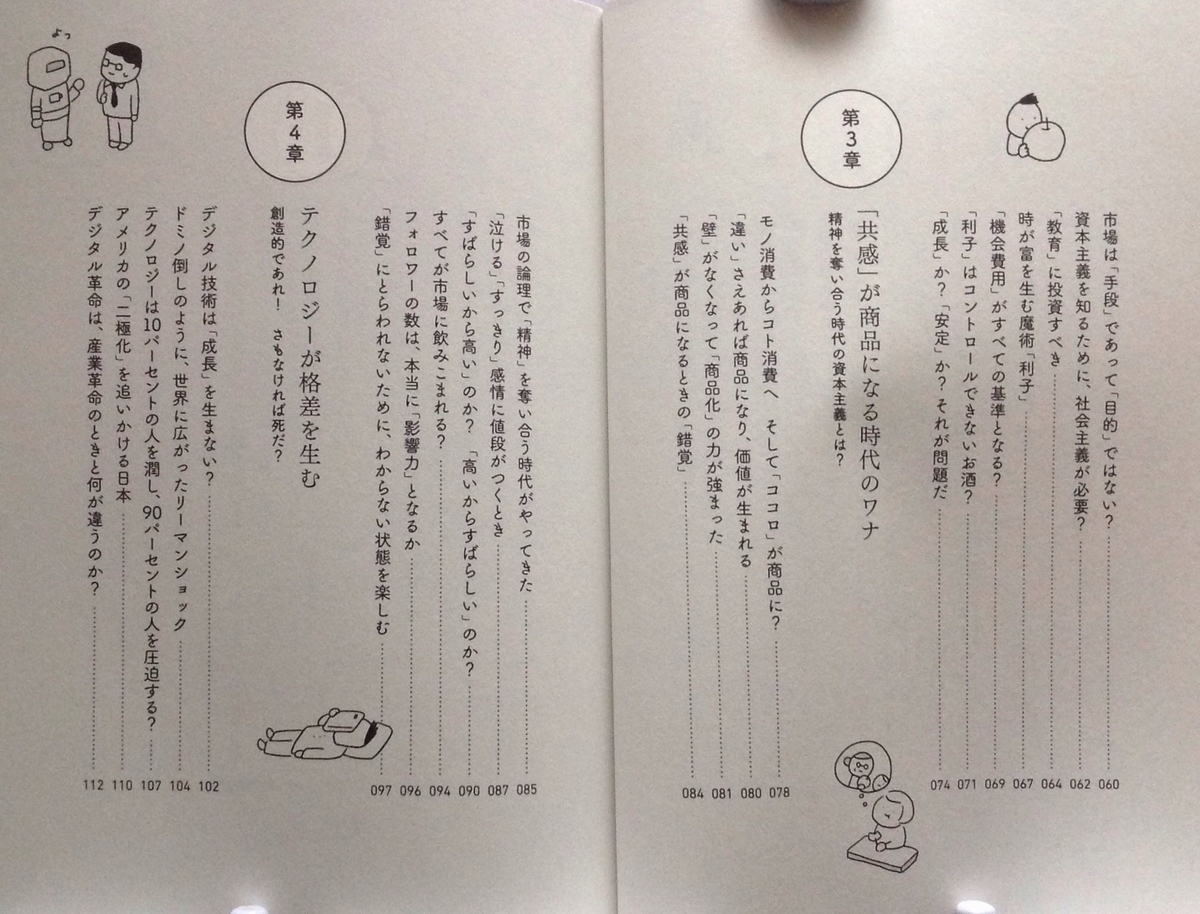 市場は「手段」であって「目的」ではない？ 060
資本主義を知るために、社会主義が必要？ 062
「教育」に投資すべき 064
時が富を生む魔術「利子」 067
「機会費用」がすべての基準となる？ 069
「利子」はコントロールできないお酒？ 071
「成長」か？「安定」か？それが問題だ 074
第3章
「共感」が商品になる時代のワナ
精神を奪い合う時代の資本主義とは？
モノ消費からコト消費へ　そして「ココロ」が商品に？ 078
「違い」さえあれば商品になり、価値が生まれる 080
「壁」がなくなって「商品化」の力が強まった 081
「共感」が商品になるときの「錯覚」 084
市場の論理で「精神」を奪い合う時代がやってきた 085
「泣ける」「すっきり」感情に値段がつくとき 087
「すばらしいから高い」のか？　「高いからすばらしい」のか？ 090
すべてが市場に飲みこまれる？ 094
フォロワーの数は、本当に「影響力」となるか 096
「錯覚」にとらわれないために、わからない状態を楽しむ 097
第4章
テクノロジーが格差を生む
創造的であれ！　さもなければ死だ？
デジタル技術は「成長」を生まない？ 102
ドミノ倒しのように、世界に広がったリーマンショック 104
テクノロジーは10パーセントの人を潤し、90パーセントの人を圧迫する？ 107
アメリカの「二極化」を追いかける日本 110
デジタル革命は、産業革命のときと何が違うのか？ 112
よっ